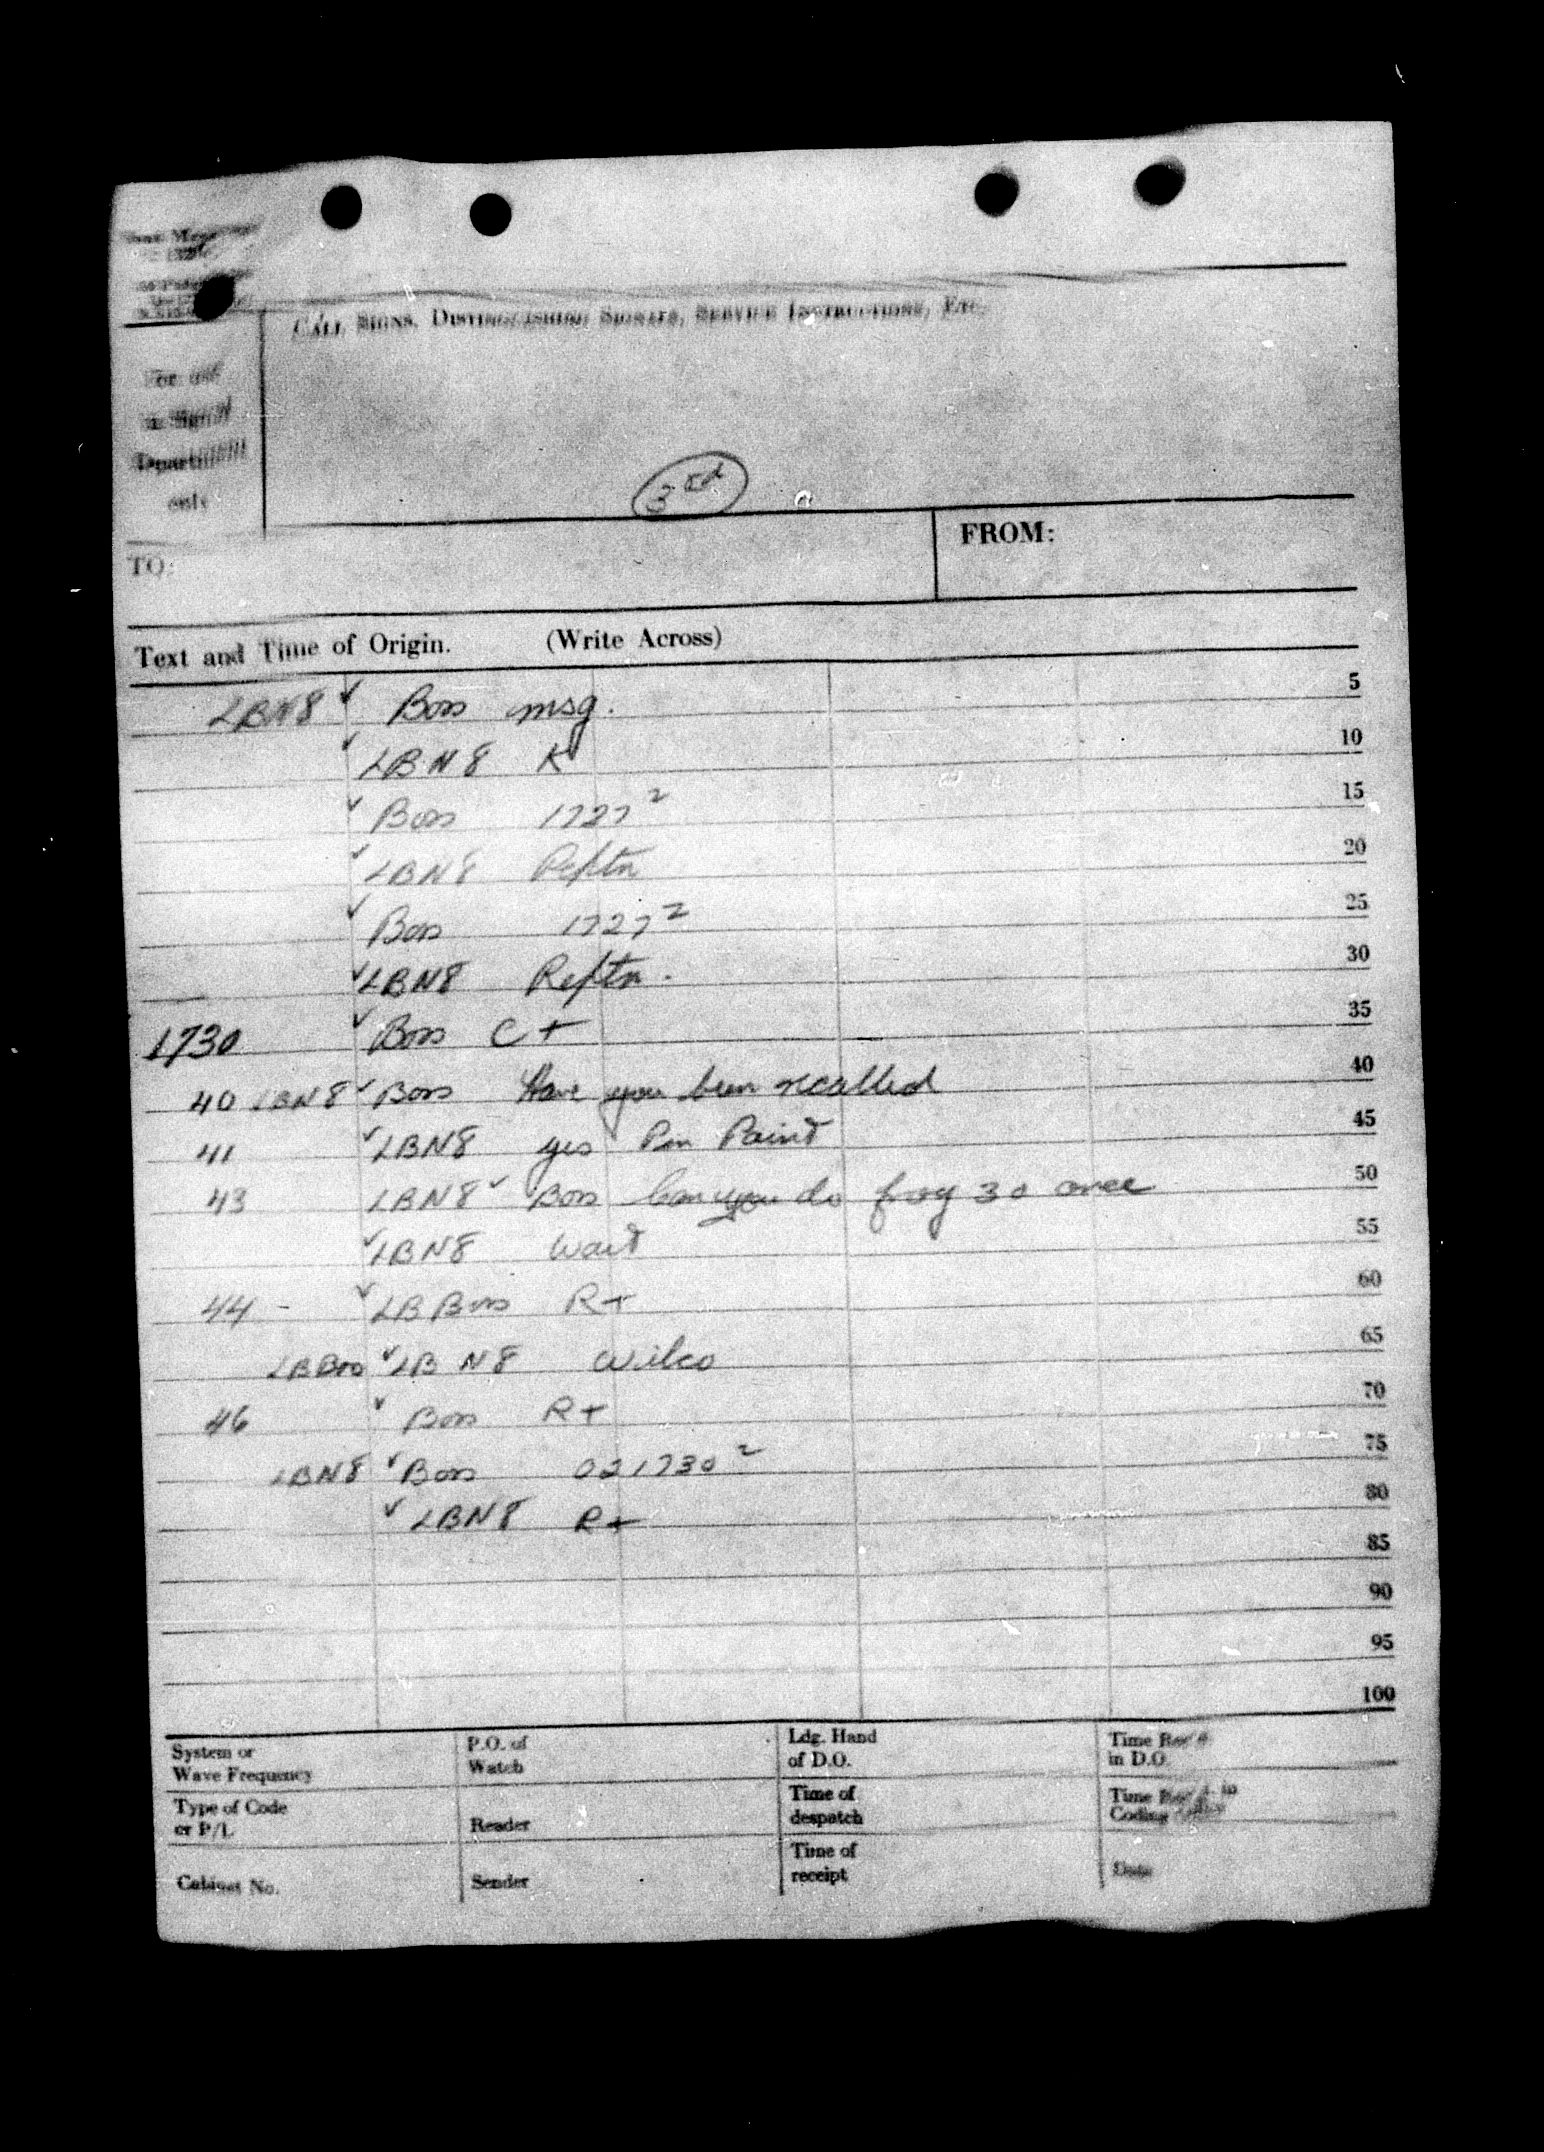 CALL SIGNS, DISTINGUISHING SIGNALS, SERVICE INSTRUCTIONS, ETC.
For use
in Signal
Department
only
3rd
TO:
FROM:
Text and Time of Origin. (Write Across)
LBN8 ✓ Boss msg. 5
✓ LBN8 K 10
✓ Boss 1727² 15
✓ LBN8 Reptn 20
✓ Boss 1727² 25
✓ LBN8 Reptn. 30
1730 ✓ Boss C+ 35
40 LBN8 ✓ Boss Have you been recalled 40
41 ✓ LBN8 yes Pm Paint 45
43 LBN8 ✓ Boss Can you do frog 30 over 50
✓ LBN8 Wait 55
44 - ✓ LB Boss R+ 60
LB Boss ✓ LB N8 Wilco 65
46 ✓ Boss R+ 70
LBN8 ✓ Boss 021730² 75
✓ LBN8 R+ 80
85
90
95
100
System or
Wave Frequency
P.O. of
Watch
Ldg. Hand
of D.O.
Time Rec'd
in D.O.
Type of Code
or P/L
Reader
Time of
despatch
Time Rec'd in
Coding
Cabinet No.
Sender
Time of
receipt
Date